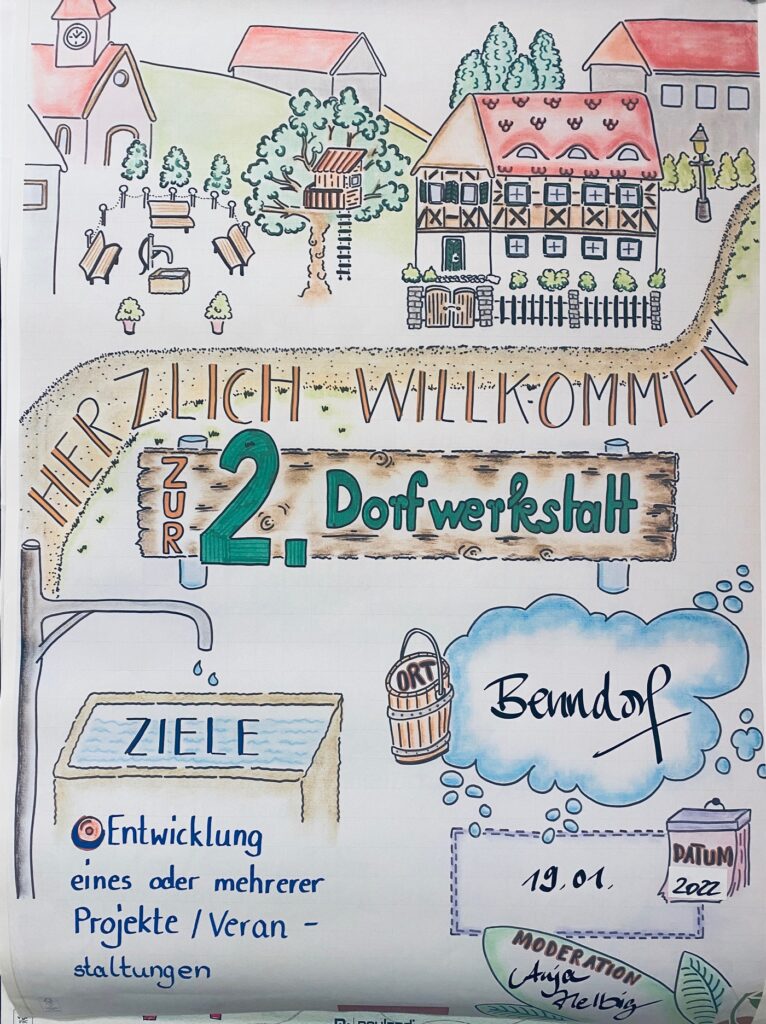 HERZLICH WILLKOMMEN
ZUR 2. Dorfwerkstatt
ORT
Benndorf
ZIELE
Entwicklung
eines oder mehrerer
Projekte / Veran -
staltungen
19.01.
DATUM
2022
MODERATION
Anja
Helbig